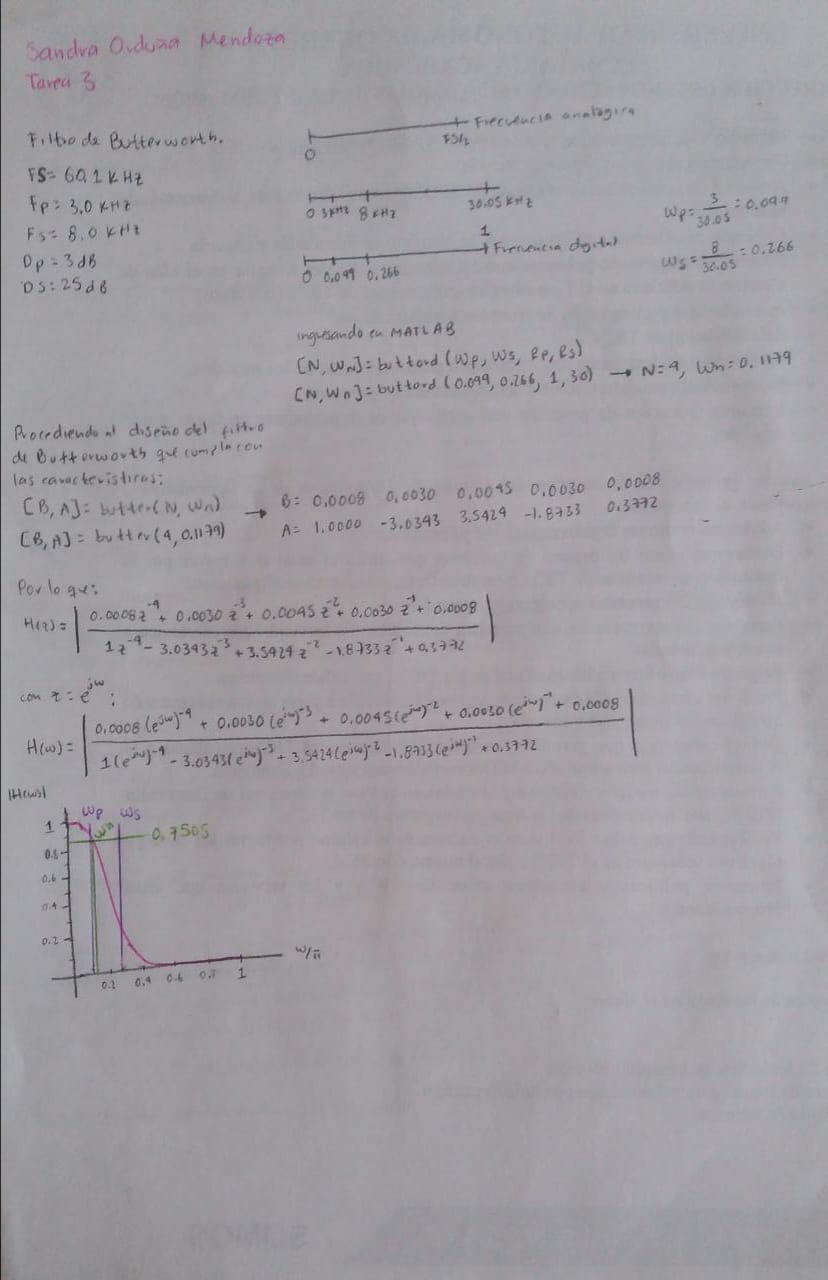 Sandra Orduña Mendoza
Tarea 3
Filtro de Butterworth.
FS= 60.1 KHz
Fp= 3.0 KHz
Fs= 8.0 KHz
Dp= 3 dB
DS: 25 dB
Frecuencia analógica
0 FS/2
0 3KHz 8 KHz 30.05 KHz
1
Frecuencia digital
0 0.099 0.266
Wp= 3/30.05 = 0.099
Ws= 8/30.05 = 0.266
ingresando en MATLAB
[N, Wn]= buttord (Wp, Ws, Rp, Rs)
[N, Wn]= buttord (0.099, 0.266, 1, 30) → N=4, Wn=0.1179
Procediendo al diseño del filtro
de Butterworth que cumpla con
las características:
[B, A]= butter(N, Wn) → B= 0,0008 0,0030 0,0045 0,0030 0,0008
[B, A]= butter(4, 0.1179) A= 1.0000 -3.0343 3.5424 -1.8733 0.3772
Por lo que:
H(z)= | (0.0008 z^-4 + 0.0030 z^-3 + 0.0045 z^-2 + 0.0030 z^-1 + 0.0008) / (1 z^-4 - 3.0343 z^-3 + 3.5424 z^-2 - 1.8733 z^-1 + 0.3772) |
con z = e^jw :
H(w)= | (0.0008 (e^jw)^-4 + 0.0030 (e^jw)^-3 + 0.0045 (e^jw)^-2 + 0.0030 (e^jw)^-1 + 0.0008) / (1 (e^jw)^-4 - 3.0343 (e^jw)^-3 + 3.5424 (e^jw)^-2 - 1.8733 (e^jw)^-1 + 0.3772) |
|H(w)|
wp ws
1 wn 0.7505
0.8
0.6
0.4
0.2
0.2 0.4 0.6 0.8 1 w/π